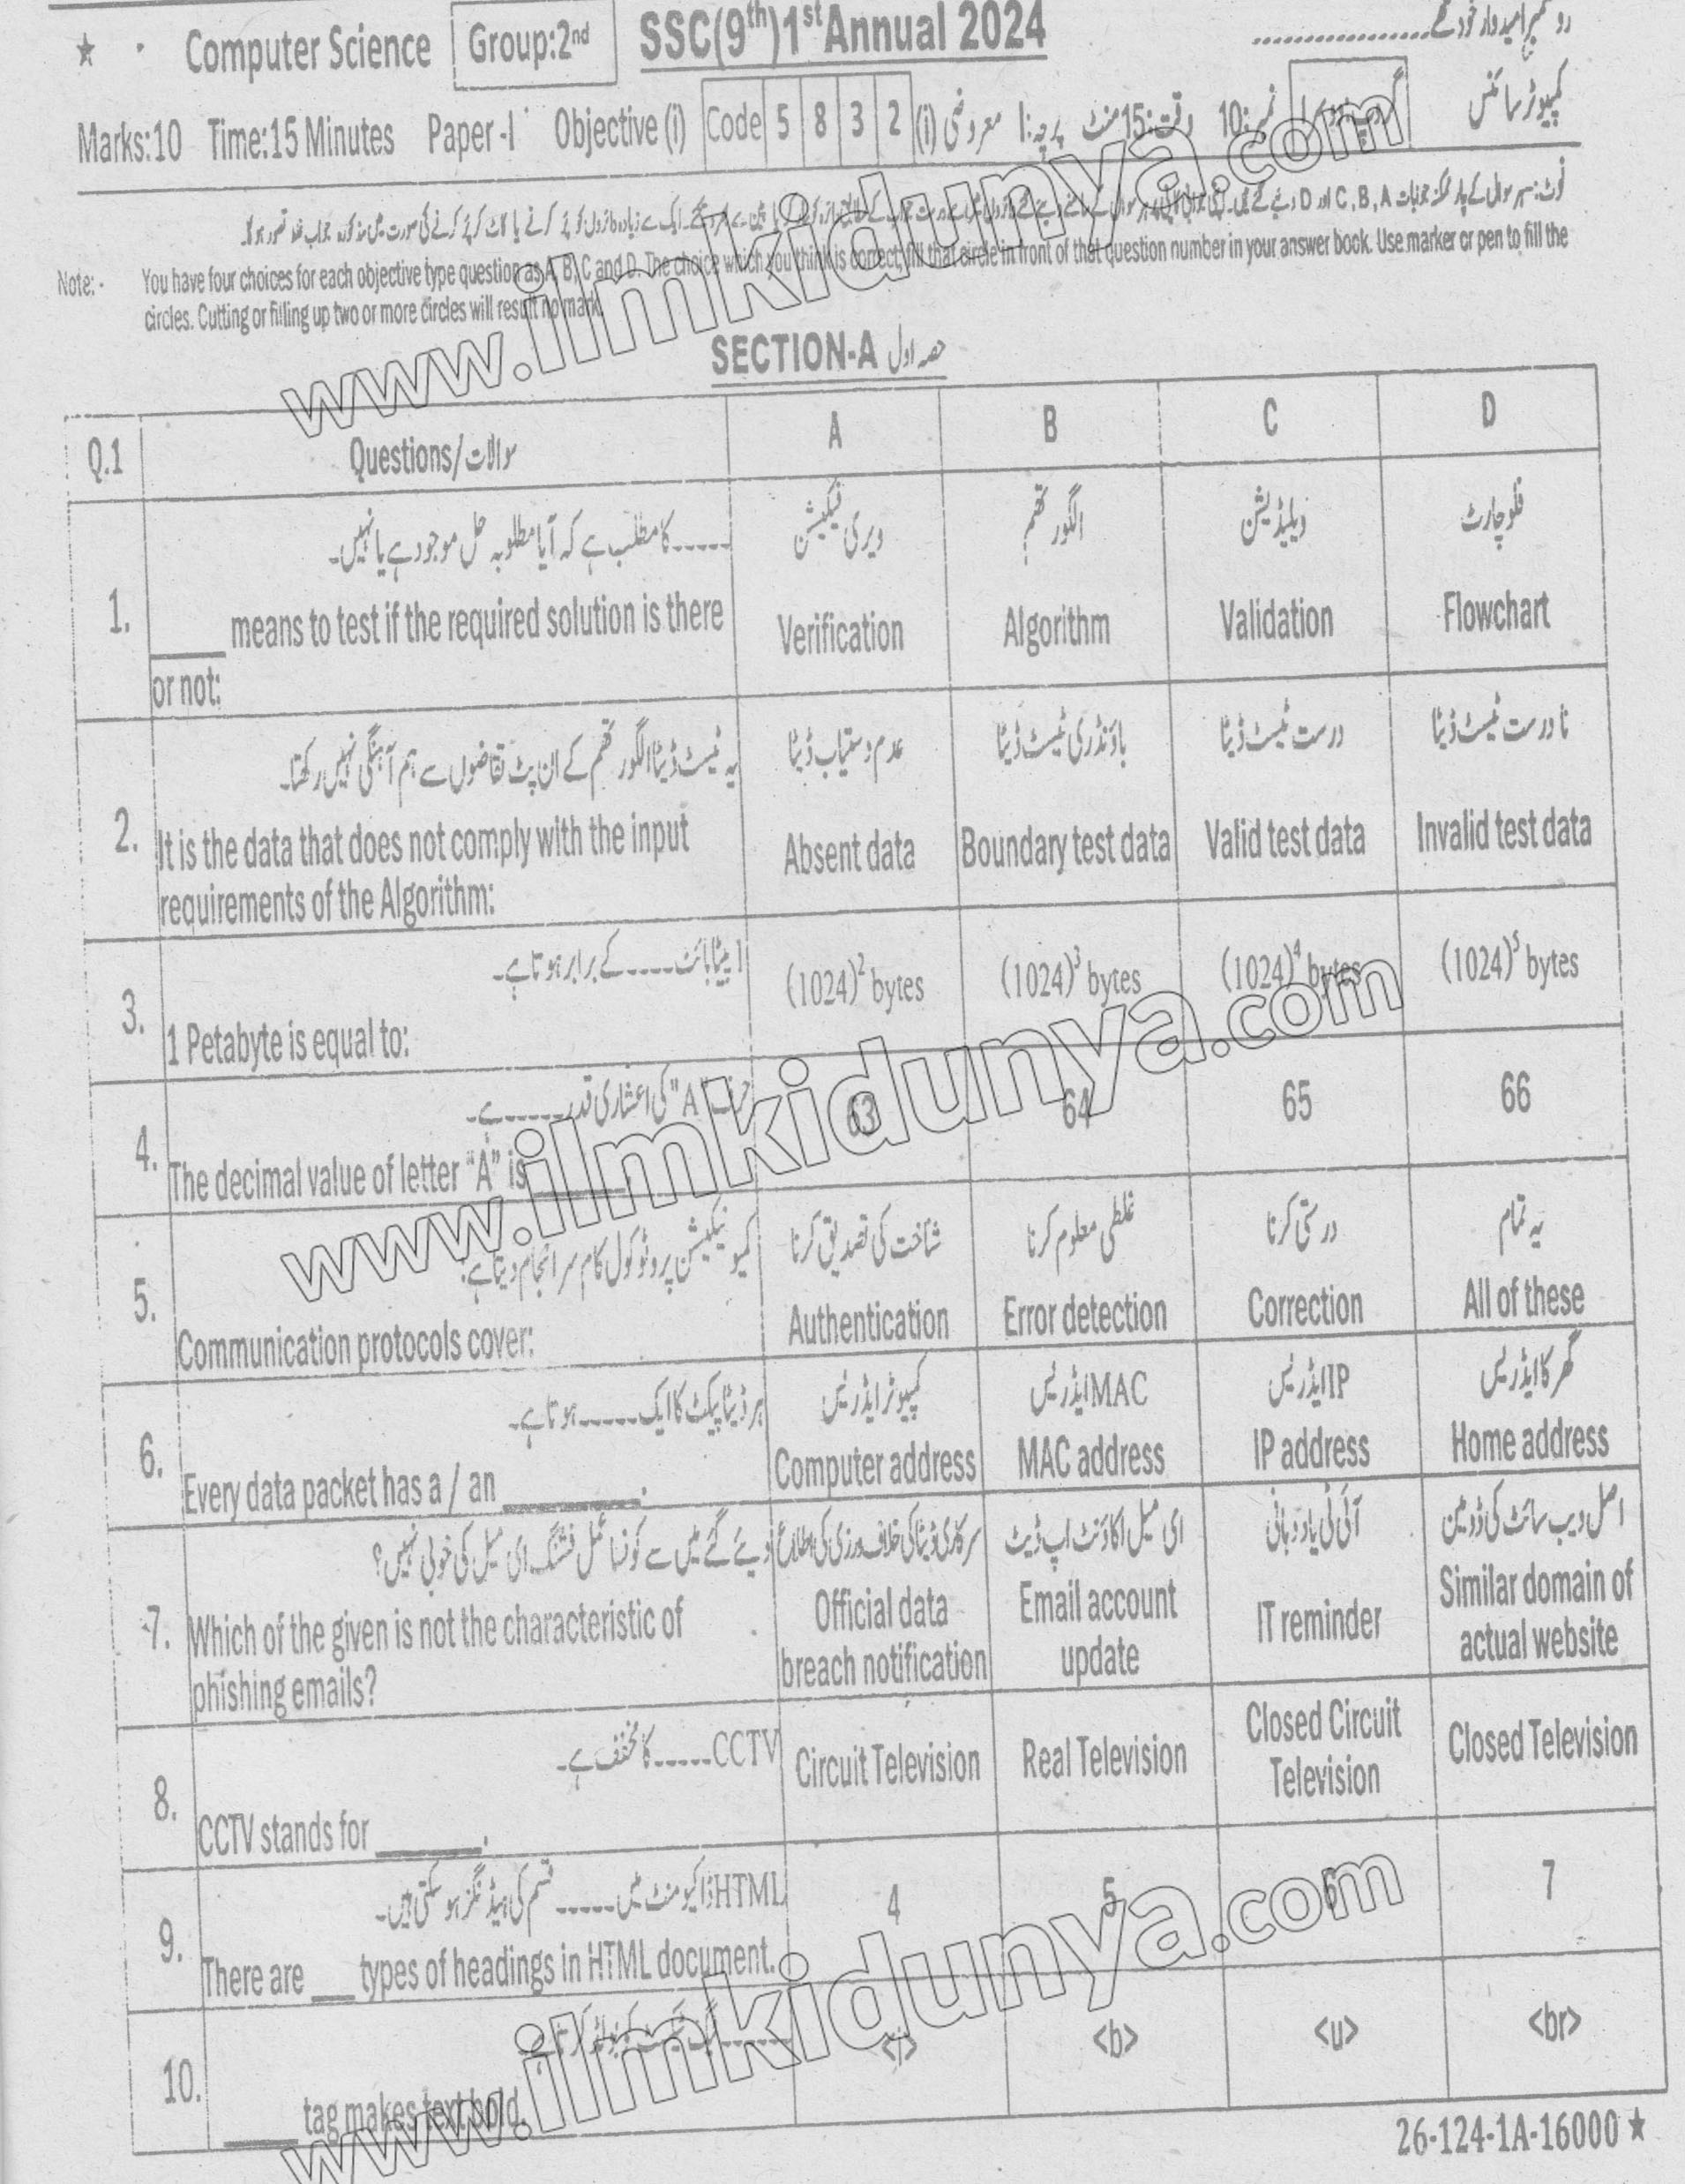 ★ Computer Science Group:2nd SSC(9th)1st Annual 2024
Marks:10 Time:15 Minutes Paper-I Objective (i) Code 5 8 3 2 (i) معروضی پرچہ:I وقت:15منٹ نمبر:10 کمپیوٹر سائنس
Note:- You have four choices for each objective type question as A, B, C and D. The choice which you think is correct; fill that circle in front of that question number in your answer book. Use marker or pen to fill the
circles. Cutting or filling up two or more circles will result no mark.
SECTION-A حصہ اول
Q.1 Questions/سوالات A B C D
-----کا مطلب ہے کہ آیا مطلوبہ حل موجود ہے یا نہیں۔ ویری فیکیشن الگورتھم ویلیڈیشن فلوچارٹ
1. ____ means to test if the required solution is there Verification Algorithm Validation Flowchart
or not:
یہ ٹیسٹ ڈیٹا الگورتھم کے ان پٹ تقاضوں سے ہم آہنگی نہیں رکھتا۔ عدم دستیاب ڈیٹا باؤنڈری ٹیسٹ ڈیٹا درست ٹیسٹ ڈیٹا نا درست ٹیسٹ ڈیٹا
2. It is the data that does not comply with the input Absent data Boundary test data Valid test data Invalid test data
requirements of the Algorithm:
1 پیٹا بائٹ-----کے برابر ہوتا ہے۔ (1024)² bytes (1024)³ bytes (1024)⁴ bytes (1024)⁵ bytes
3. 1 Petabyte is equal to:
حرف "A" کی اعشاری قدر-----ہے۔ 63 64 65 66
4. The decimal value of letter "A" is ____
کمیونیکیشن پروٹوکول کام سرانجام دیتا ہے: شناخت کی تصدیق کرنا غلطی معلوم کرنا درستی کرنا یہ تمام
5. Communication protocols cover: Authentication Error detection Correction All of these
ہر ڈیٹا پیکٹ کا ایک-----ہوتا ہے۔ کمپیوٹر ایڈریس MACایڈریس IPایڈریس گھر کا ایڈریس
6. Every data packet has a / an ____. Computer address MAC address IP address Home address
دیئے گئے میں سے کونسا عمل فشنگ ای میل کی خوبی نہیں؟ سرکاری ڈیٹا کی خلاف ورزی کی اطلاع ای میل اکاؤنٹ اپ ڈیٹ آئی ٹی یاد دہانی اصل ویب سائٹ کی ڈومین
7. Which of the given is not the characteristic of Official data Email account IT reminder Similar domain of
phishing emails? breach notification update actual website
CCTV-----کا مخفف ہے۔ Circuit Television Real Television Closed Circuit Closed Television
Television
8. CCTV stands for ____.
HTMLڈاکیومنٹ میں-----قسم کی ہیڈنگز ہو سکتی ہیں۔ 4 5 6 7
9. There are ___ types of headings in HTML document.
<i> <b> <u> <br>
10. ____ tag makes text bold.
26-124-1A-16000 ★
www.ilmkidunya.com
www.ilmkidunya.com
www.ilmkidunya.com